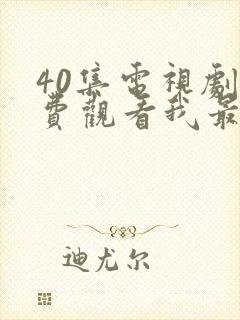 40集電視劇
費觀看我最
迪尤尔